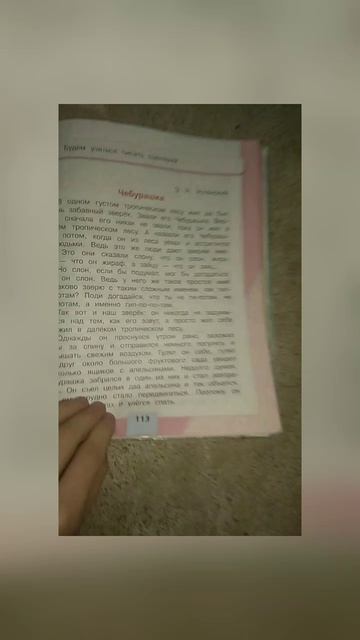 Будем учиться писать сценарий
Э. Н. Успенский
Чебурашка
В одном густом тропическом лесу жил да был
забавный зверёк. Звали его Чебурашка.
сначала его никак не звали, пока он жил в
тропическом лесу. А назвали его
потом, когда он из леса уехал и встретился
людьми. Ведь это же люди дают зверям
Это они сказали слону, что он слон,
— что он жираф, а зайцу — что он заяц.
Но слон, если бы подумал, мог бы догадаться,
он слон. Ведь у него же такое простое имя!
каково зверю с таким сложным именем, как
Поди догадайся, что ты не ги-потам, не
потам, а именно гип-по-по-там.
Так вот и наш зверёк: он никогда не
над тем, как его зовут, а просто жил себе
жил в далёком тропическом лесу.
Однажды он проснулся утром рано, заложил
за спину и отправился немного погулять и
свежим воздухом. Гулял он себе, гулял
вдруг около большого фруктового сада увидел
ящиков с апельсинами. Недолго думая,
забрался в один из них и стал
Он съел целых два апельсина и так объелся,
трудно стало передвигаться. Поэтому он
и улёгся спать.
113